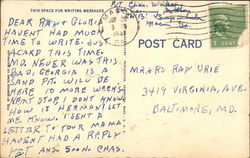 THIS SPACE FOR WRITING MESSAGES
DEAR RAY & GLORIA
HAVENT HAD MUCH
TIME TO WRITE. JUST
A CARD THIS TIME.
MD. NEVER WAS THIS
BAD. GEORGIA IS A
SAND PIT. WILL BE
HERE 10 MORE WEEKS.
NEXT STOP I DONT KNOW.
HOW IS HERMAN? LET
ME KNOW. I SENT A
LETTER TO YOUR MAMA.
HAVENT HAD A REPLY
YET. ANS. SOON. CHAS.
Pvt. Chas.
Macon Ga.
POST CARD
1 CENT
MR. & MRS RAY URIE
3419 VIRGINIA AVE.
BALTIMORE, MD.